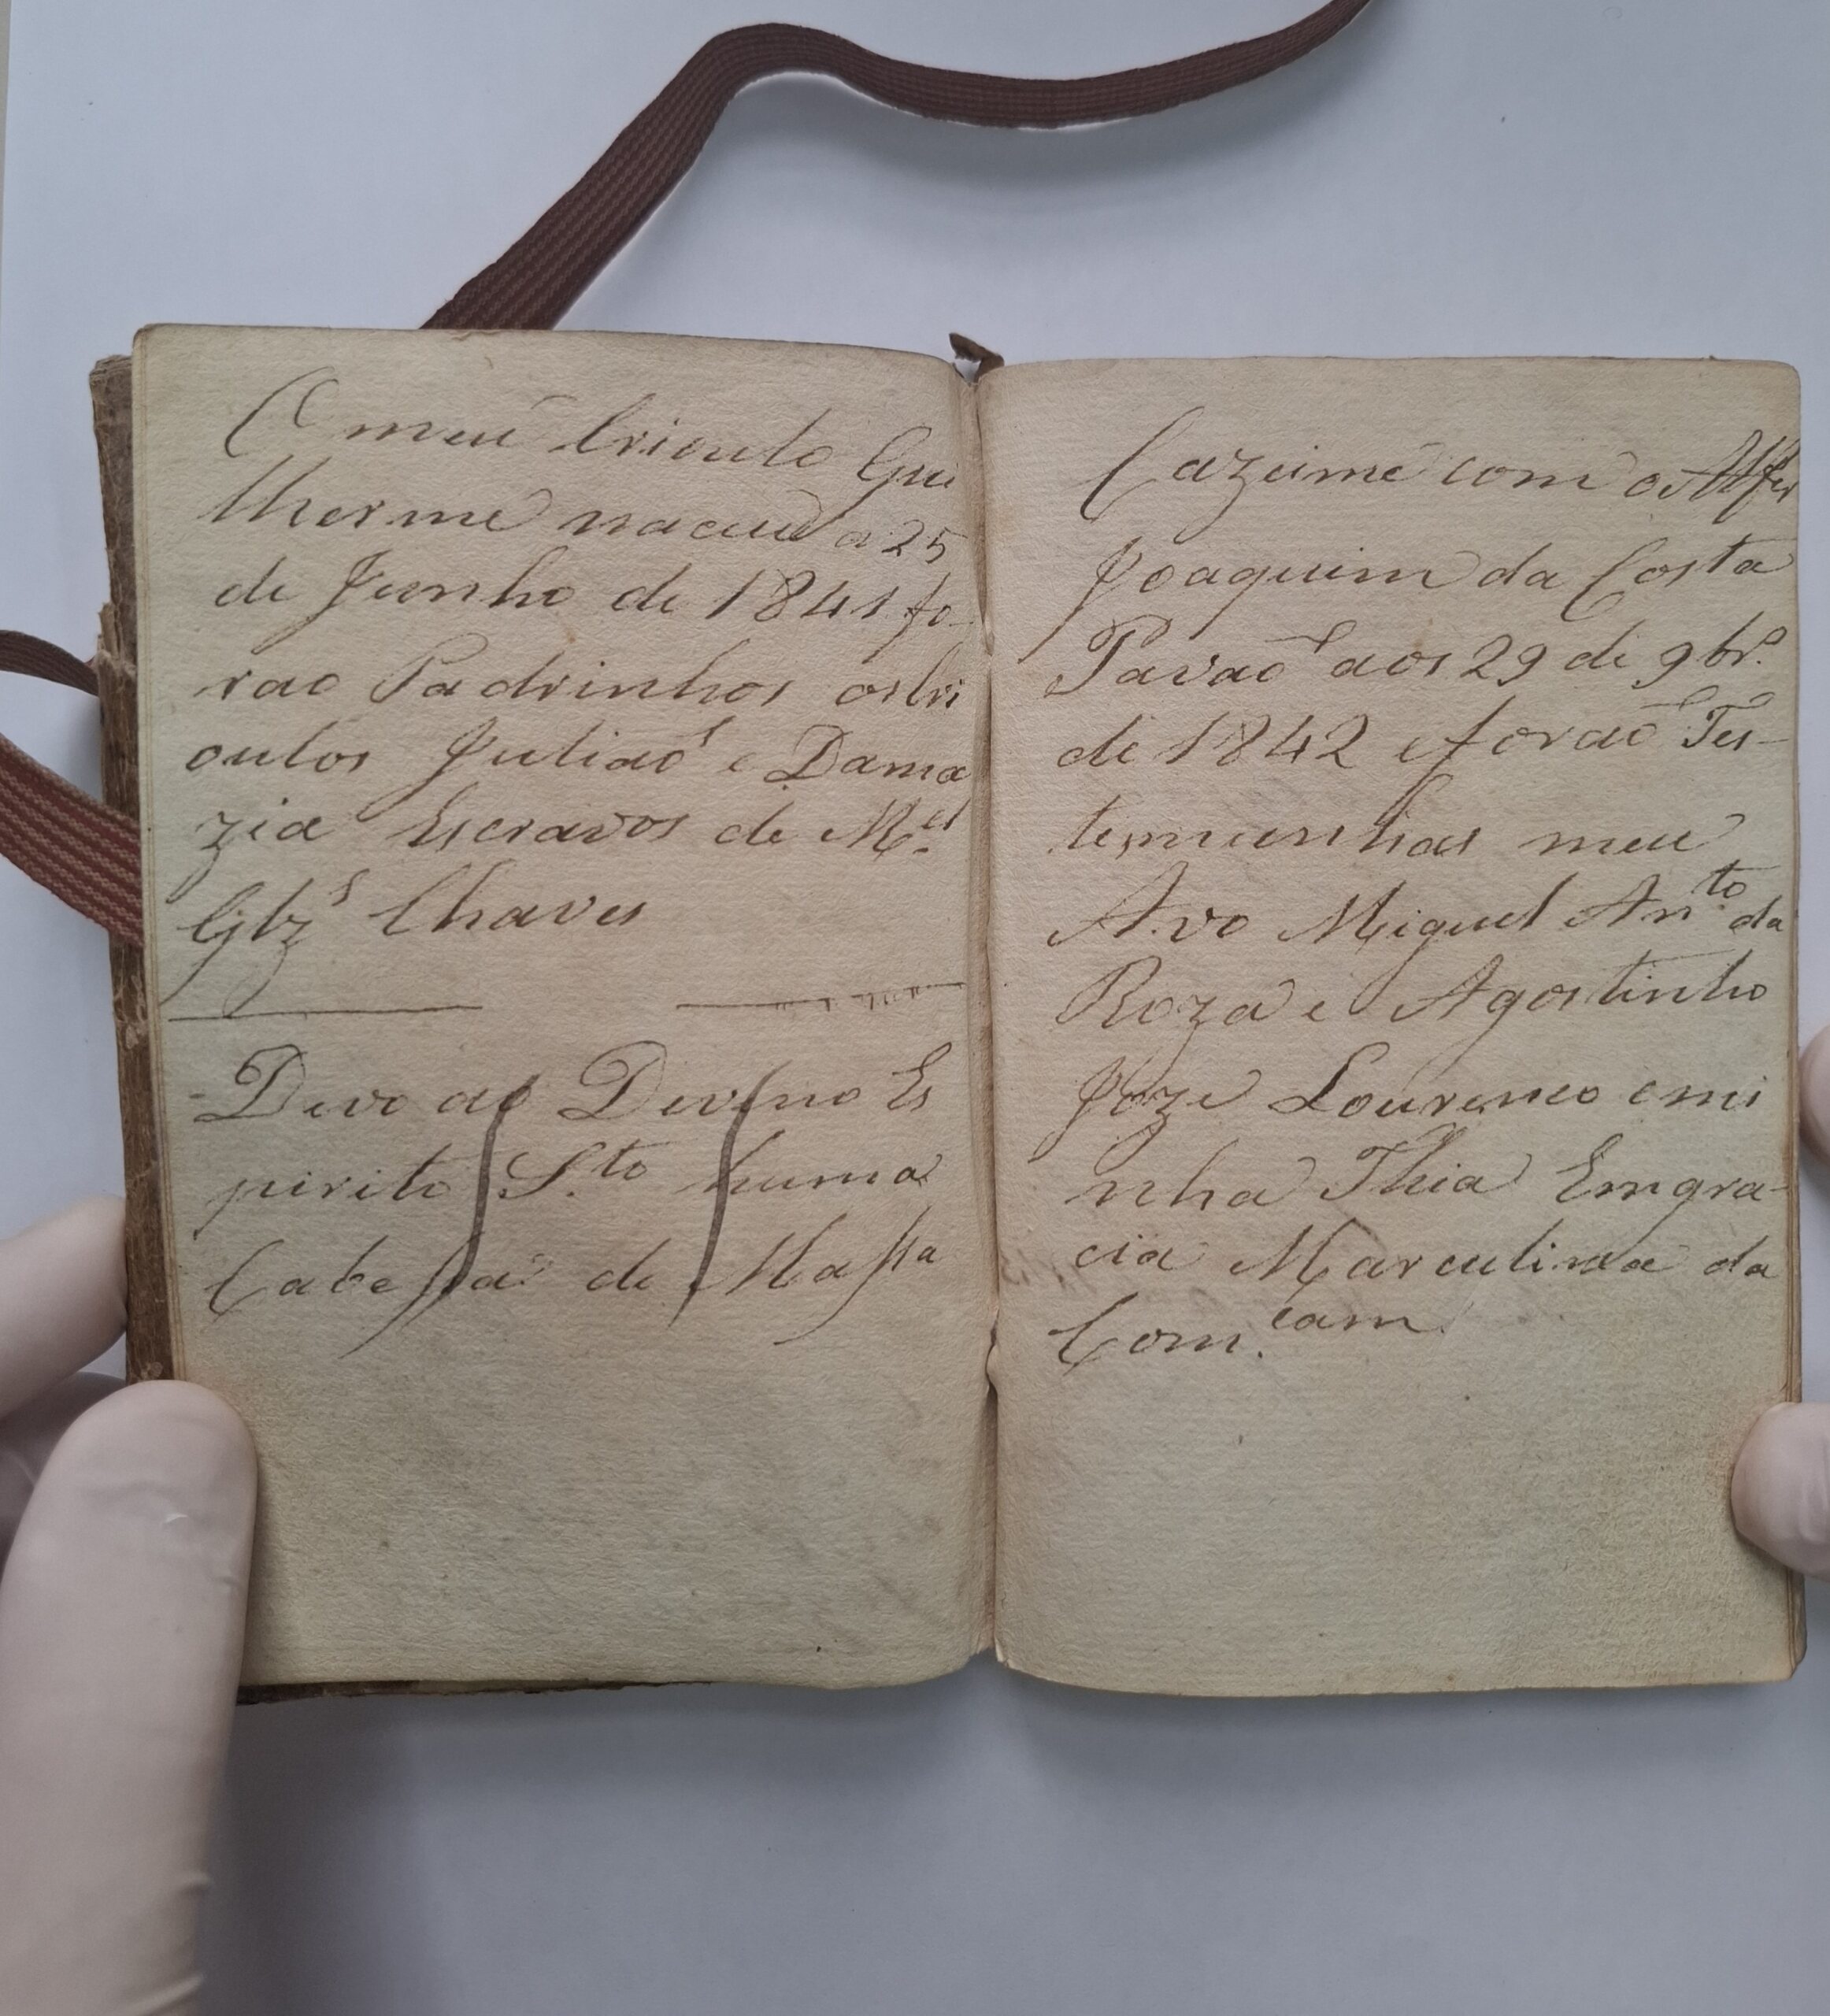 O meu Crioulo Gui
lherme naceu a 25
de Junho de 1841 fo-
rao Padrinhos os Cri
oulos Julião e Dama
zia Escravos de M.el
Glz.s Chaves
Devo ao Devino Es
pirito S.to huma
Cabessa de Massa
Cazeime com o Alfer
Joaquim da Costa
Pavaõ aos 29 de 9br.o
de 1842 e foraõ Tes-
temunhas meu
Avo Miguel An.to da
Roza e Agostinho
Joze Lourenco e mi
nha Thia Emgra-
cia Marculina da
Com.cam